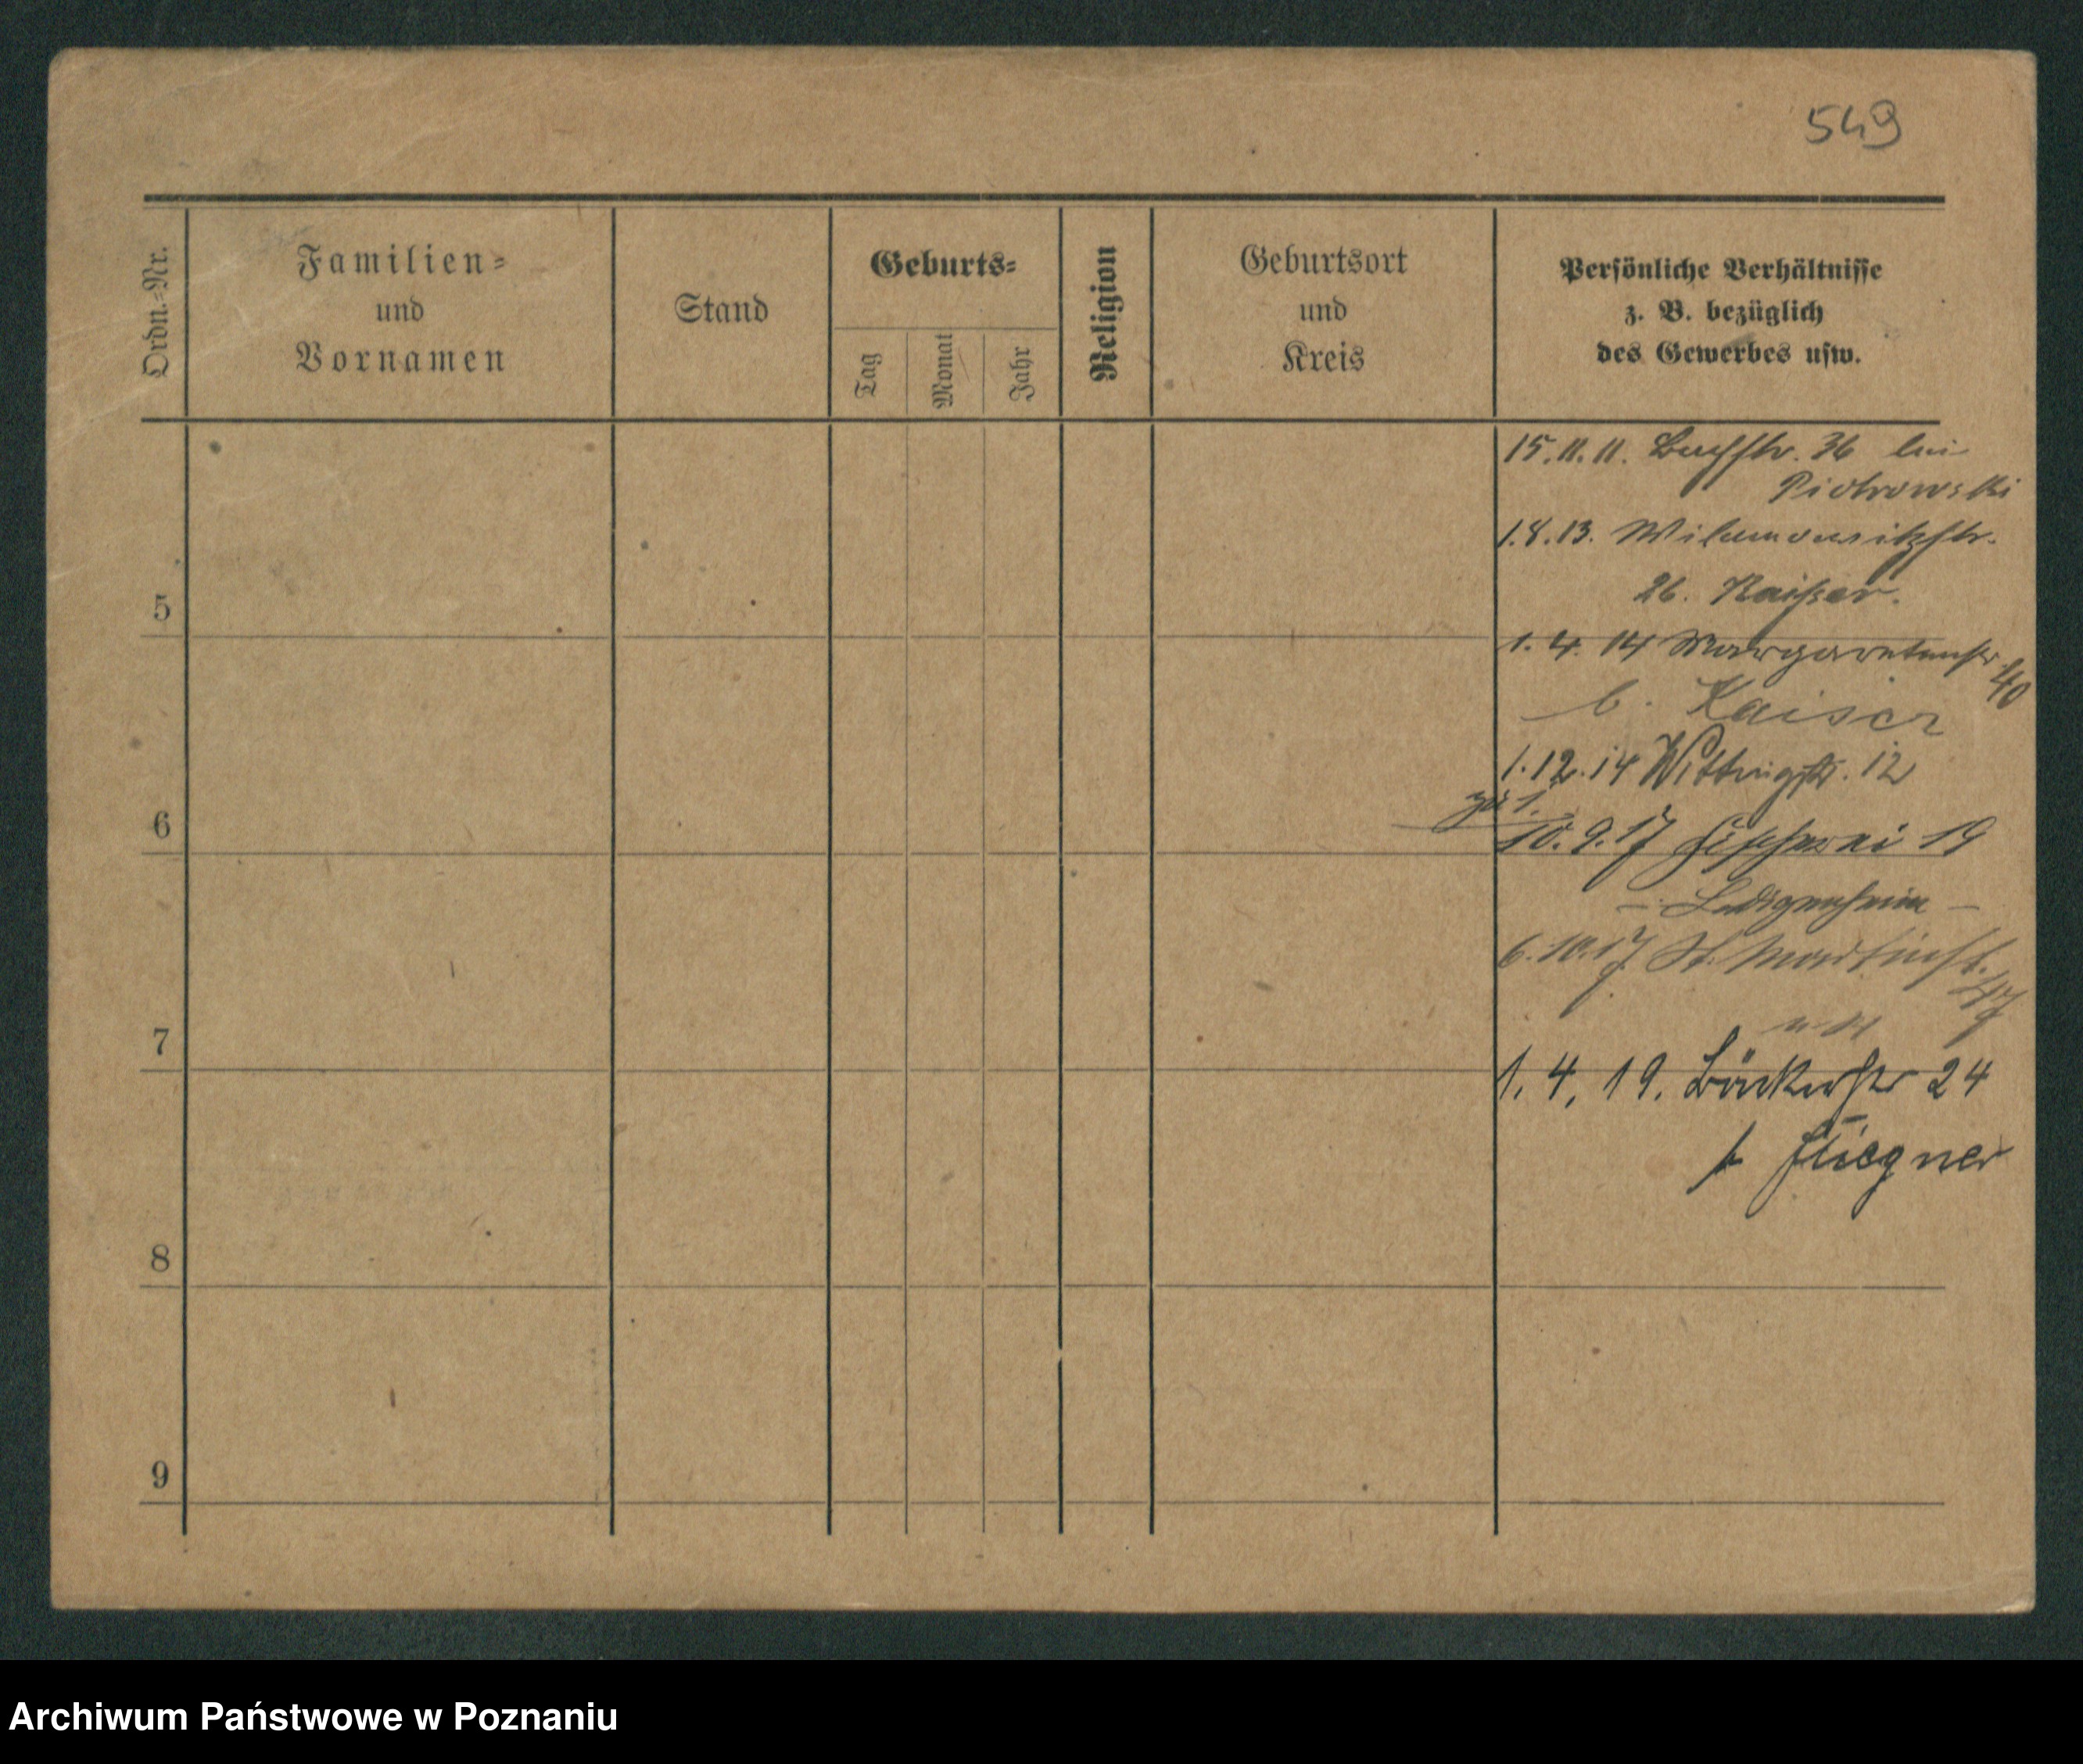 549
Ordn.-Nr.
Familien-
und
Vornamen
Stand
Geburts-
Tag
Monat
Jahr
Religion
Geburtsort
und
Kreis
Persönliche Verhältnisse
z. B. bezüglich
des Gewerbes usw.
15.11.11. Buchstr. 36 bei
Piotrowski
1.8.13. Wilamowitzstr.
26. Kaiser.
5
1.4.14 Margaretenstr. 40
b. Kaiser
1.12.14 Wittingstr. 12
zu 1.
6
10.9.17 Fischerei 19
– Ledigenheim –
6.10.17 St. Martinst. 47
7
1.4.19. Bäckerstr 24
b Fliegner
8
9
Archiwum Państwowe w Poznaniu